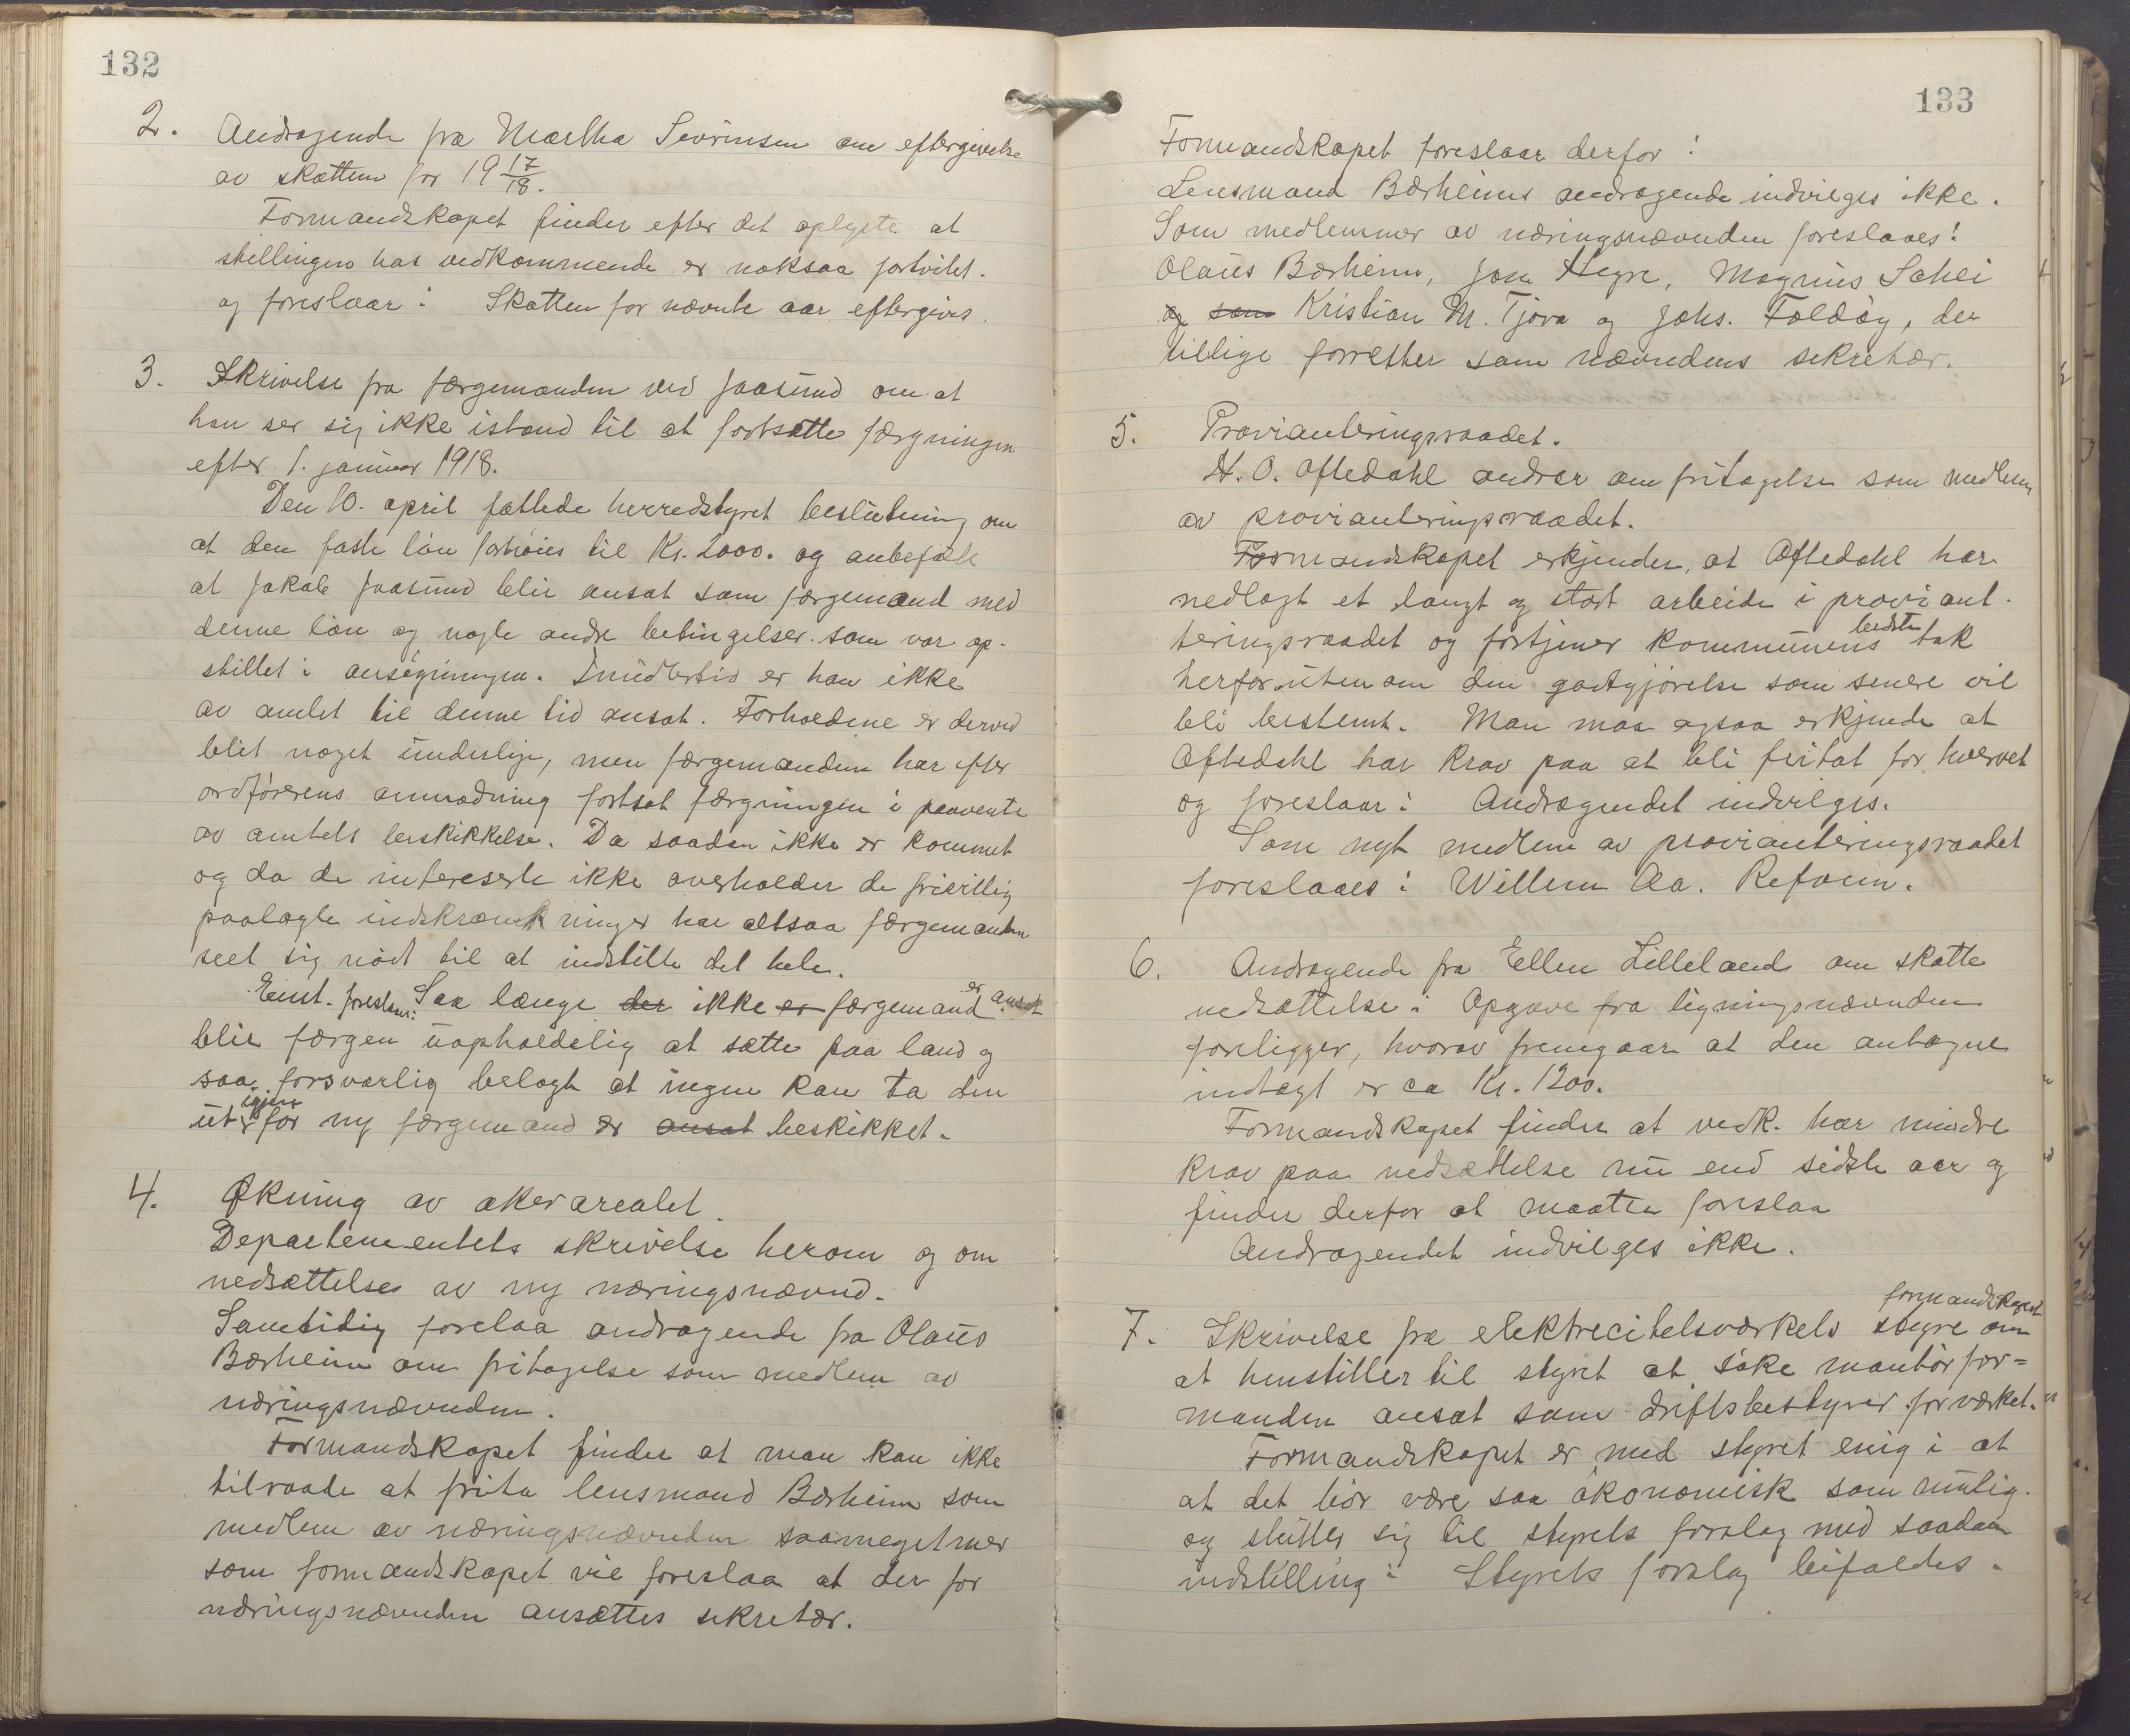 132
2. Andragende fra Martha Sevrinsen om eftergivelse
av skatten for 19 17/18.
Formandskapet finder efter det oplyste at
stillingen hos vedkommende er noksaa fortvilet.
og foreslaar: Skatten for nævnte aar eftergives.
3. Skrivelse fra færgemanden ved Jaasund om at
han ser sig ikke istand til at fortsætte færgningen
efter 1. januar 1918.
Den 10. april fattede herredstyret beslutning om
at den faste løn forhøies til Kr. 2000. og anbefalt
at Jakob Jaasund blir ansat som færgemand med
denne løn og nogle andre betingelser som var op-
stillet i ansøgningen. Imidlertid er han ikke
av amtet til denne tid ansat. Forholdene er derved
blit noget underlige, men færgemanden har efter
ordførerens anmodning fortsat færgningen i paavente
av amtets beskikkelse. Da saadan ikke er kommet
og da de intereserte ikke overholder de frivillig
paalagte indskrænkninger har altsaa færgemanden
seet sig nødt til at indstille det hele.
Enst. foreslaar: Saa længe der ikke er færgemand er ansat
blir færgen uopholdelig at sætte paa land og
saa forsvarlig belagt at ingen kan ta den
ut igjen før ny færgemand er ansat beskikket.
4. Økning av akerarealet.
Departementets skrivelse herom og om
nedsættelse av ny næringsnævnd.
Samtidig forelaa andragende fra Olaus
Bærheim om fritagelse som medlem av
næringsnævnden.
Formandskapet finder at man kan ikke
tilraade at frita lensmand Bærheim som
medlem av næringsnævnden saameget mer
som formandskapet vil foreslaa at der for
næringsnævnden ansættes sekretær.
133
Formandskapet foreslaar derfor:
Lensmand Bærheims andragende indvilges ikke.
Som medlemmer av næringsnævnden foreslaaes:
Olaus Bærheim, Jon Hegre, Magnus Sahei
og som Kristian M. Tjora og Johs. Foldøy, der
tillige forretter som nævndens sekretær.
5. Provianteringsraadet.
H. O. Oftedahl andrar om fritagelse som medlem
av provianteringsraadet.
Formandskapet erkjender, at Oftedahl har
nedlagt et langt og stort arbeide i proviant-
teringsraadet og fortjener kommunens bedste tak
herfor utenom den godtgjørelse som senere vil
bli bestemt. Man maa ogsaa erkjende at
Oftedahl har krav paa at bli fritat for hvervet
og foreslaar: Andragendet indvilges.
Som nyt medlem av provianteringsraadet
foreslaaes: Willem Aa. Refsum.
6. Andragende fra Ellen Lilleland om skatte
nedsættelse: Opgave fra ligningsnævnden
foreligger, hvorav fremgaar at den antagne
indtægt er ca Kr. 1200.
Formandskapet finder at vedk. har mindre
krav paa nedsættelse nu end sidste aar og
finder derfor at maatte foreslaa
Andragendet indvilges ikke.
7. Skrivelse fra elektrecitetsværkets styre om formandskapet
at henstiller til styret at søke montørfor=
manden ansat som driftsbestyrer for værket.
Formandskapet er med styret enig i at
at det bør være saa økonomisk som mulig.
og slutter sig til styrets forslag med saadan
indstilling: Styrets forslag bifaldes.